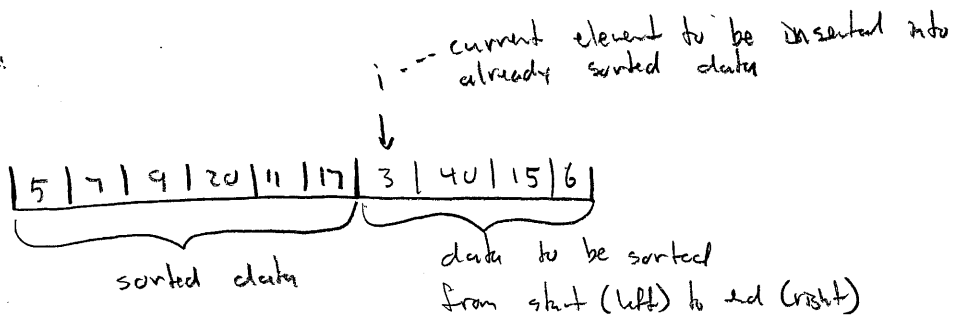 current element to be inserted into
already sorted data
i
5 | 7 | 9 | 20 | 11 | 17 | 3 | 40 | 15 | 6
sorted data
data to be sorted
from start (left) to end (right)